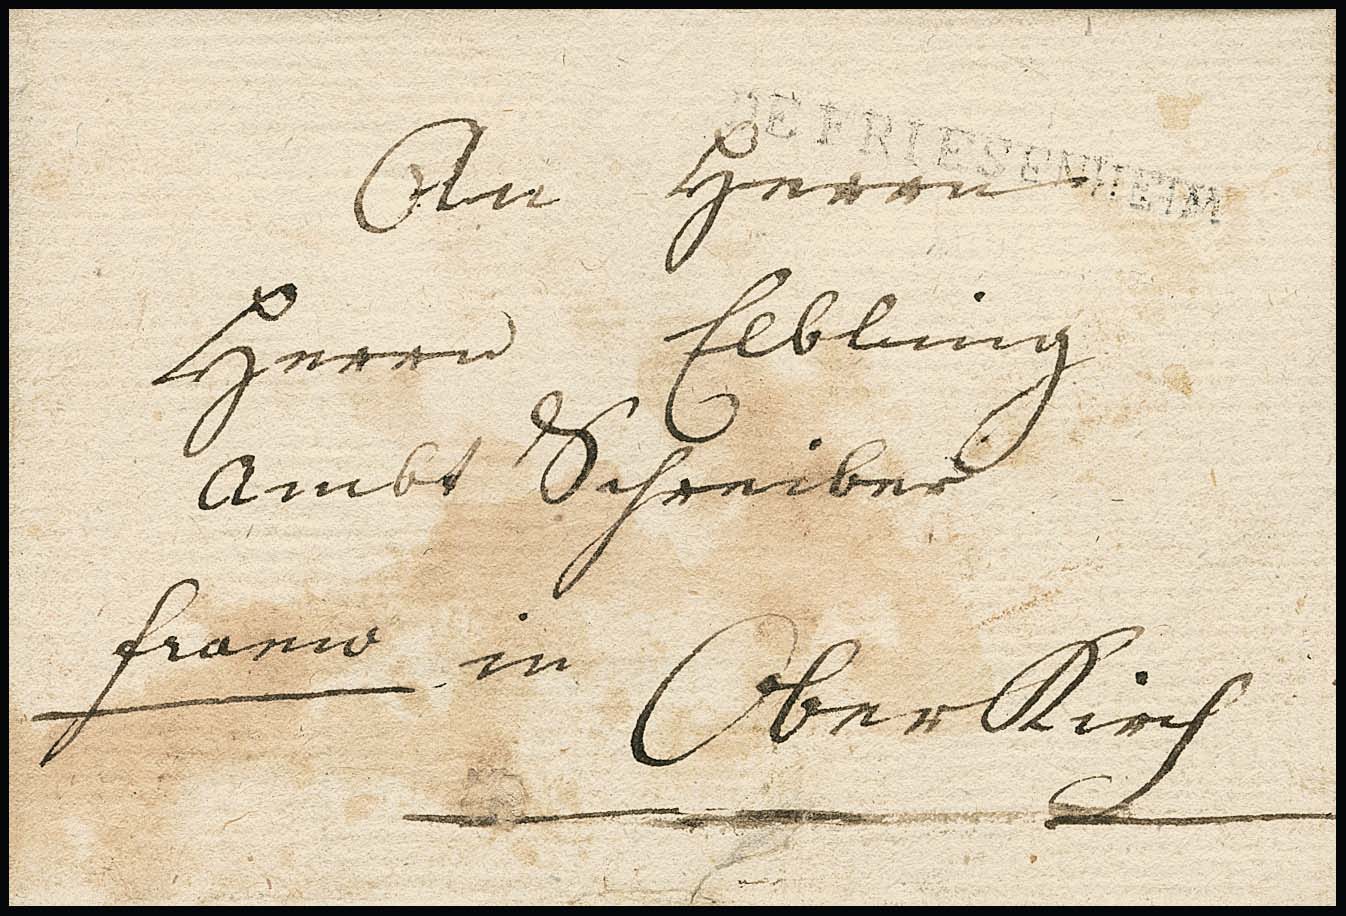 DE FRIESENHEIM
An Herrn
Herrn Elbling
Ambt Schreiber
franco in OberKirch